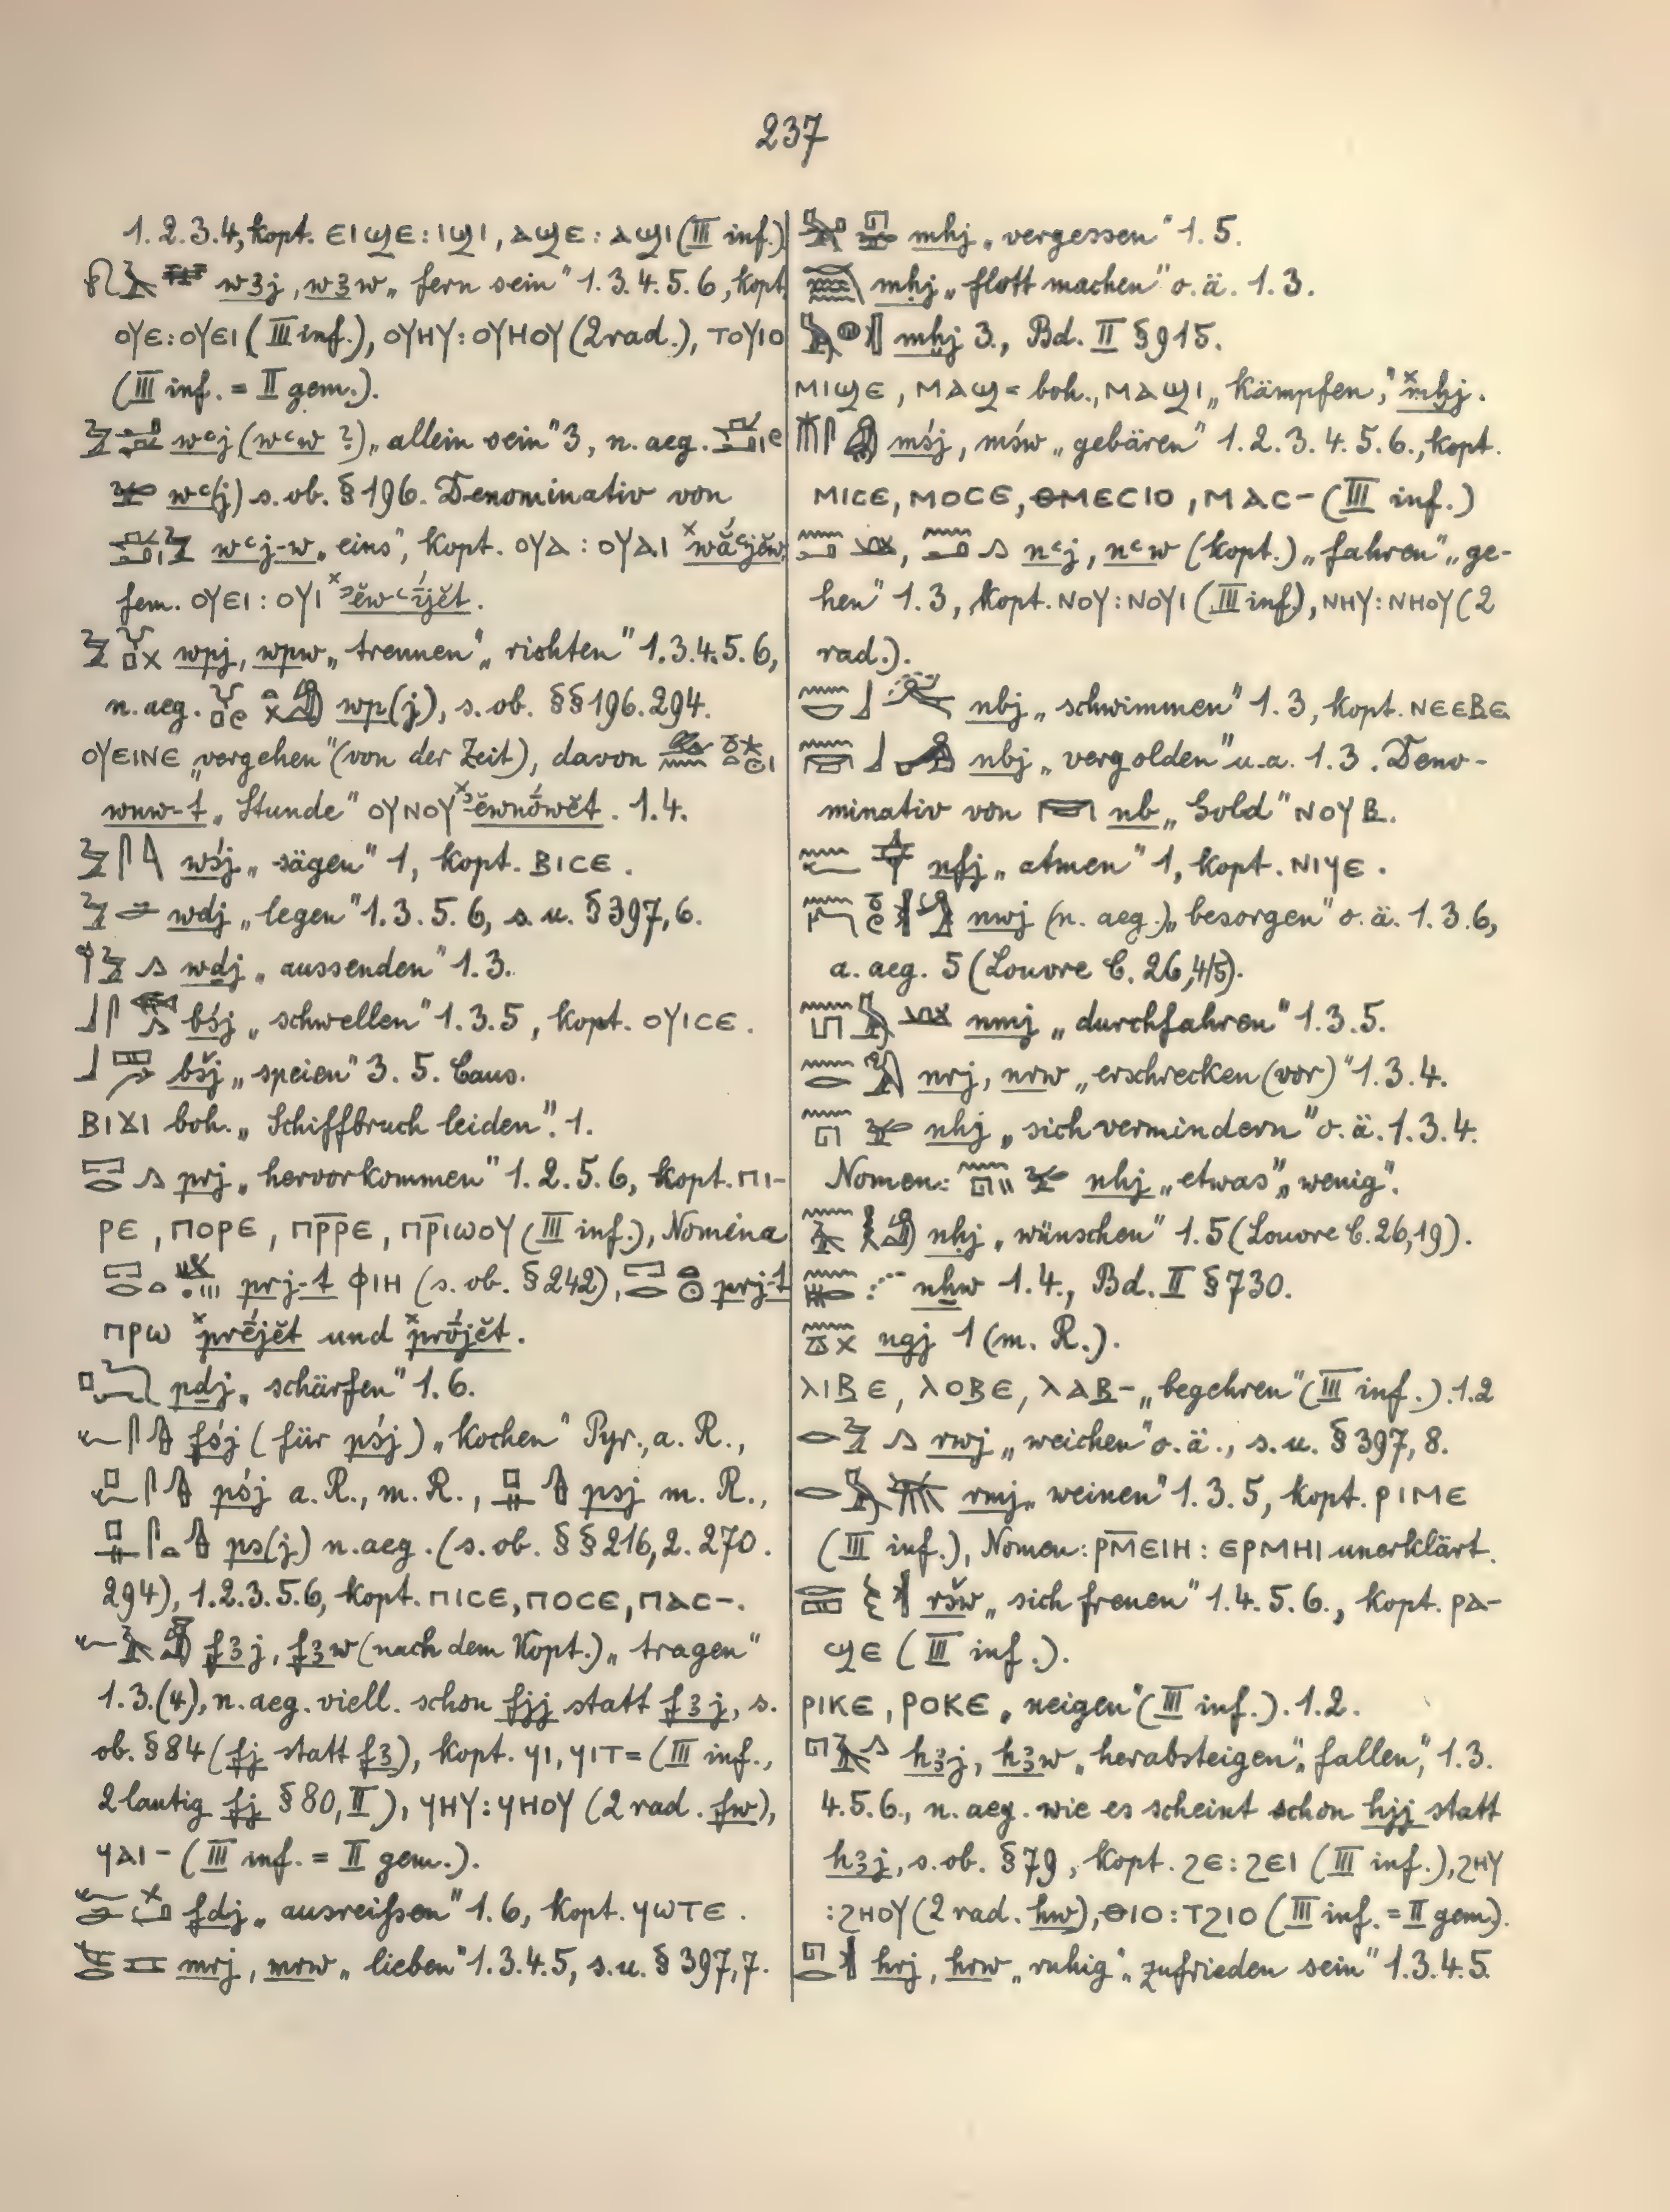 237
1.2.3.4, kopt. ⲉⲓϣⲉ : ⲓϣⲓ, ⲁϣⲉ : ⲁϣⲓ (III inf.)
wꜣj, wꜣw „fern sein" 1.3.4.5.6, kopt.
ⲟⲩⲉ : ⲟⲩⲉⲓ (III inf.), ⲟⲩⲏⲩ : ⲟⲩⲏⲟⲩ (2 rad.), ⲧⲟⲩⲓⲟ
(III inf. = II gem.).
wꜥj (wꜥw ?) „allein sein" 3, n. aeg.
wꜥ(j) s. ob. § 196. Denominativ von
wꜥj-w „eins", kopt. ⲟⲩⲁ : ⲟⲩⲁⲓ ˣwắꜥjĕw,
fem. ⲟⲩⲉⲓ : ⲟⲩⲓ ˣꜣĕwꜥī́jĕt.
wpj, wpw „trennen" „richten" 1.3.4.5.6,
n. aeg. wp(j), s. ob. §§ 196. 294.
ⲟⲩⲉⲓⲛⲉ „vergehen" (von der Zeit), davon
wnw-t „Stunde" ⲟⲩⲛⲟⲩ ˣꜣĕwnṓwĕt. 1.4.
wśj „sägen" 1, kopt. ⲃⲓⲥⲉ.
wdj „legen" 1.3.5.6, s. u. § 397,6.
wḏj „aussenden" 1.3.
bśj „schwellen" 1.3.5, kopt. ⲟⲩⲓⲥⲉ.
bšj „speien" 3. 5. Caus.
ⲃⲓϫⲓ boh. „Schiffbruch leiden". 1.
prj „hervorkommen" 1.2.5.6, kopt. ⲡⲓ-
ⲣⲉ, ⲡⲟⲣⲉ, ⲡⲣ̄ⲣⲉ, ⲡⲣ̄ⲓⲱⲟⲩ (III inf.), Nomina
prj-t ⲫⲓⲏ (s. ob. § 242), prj-t
ⲡⲣⲱ ˣprḗjĕt und ˣprṓjĕt.
pḏj „schärfen" 1.6.
fśj (für pśj) „kochen" Pyr., a. R.,
pśj a. R., m. R., psj m. R.,
ps(j) n. aeg. (s. ob. §§ 216,2. 270.
294), 1.2.3.5.6, kopt. ⲡⲓⲥⲉ, ⲡⲟⲥⲉ, ⲡⲁⲥ-.
fꜣj, fꜣw (nach dem Kopt.) „tragen"
1.3.(4), n. aeg. viell. schon fjj statt fꜣj, s.
ob. § 84 (fj statt fꜣ), kopt. ϥⲓ, ϥⲓⲧ= (III inf.,
2 lautig fj § 80, II), ϥⲏⲩ : ϥⲏⲟⲩ (2 rad. fw),
ϥⲁⲓ- (III inf. = II gem.).
fdj „ausreißen" 1.6, kopt. ϥⲱⲧⲉ.
mrj, mrw „lieben" 1.3.4.5, s. u. § 397,7.
mhj „vergessen" 1.5.
mḥj „flott machen" o. ä. 1.3.
mḫj 3., Bd. II § 915.
ⲙⲓϣⲉ, ⲙⲁϣ= boh., ⲙⲁϣⲓ „kämpfen," ˣmḫj.
mśj, mśw „gebären" 1.2.3.4.5.6., kopt.
ⲙⲓⲥⲉ, ⲙⲟⲥⲉ, ⲑⲙⲉⲥⲓⲟ, ⲙⲁⲥ- (III inf.)
nꜥj, nꜥw (kopt.) „fahren" „ge-
hen" 1.3, kopt. ⲛⲟⲩ : ⲛⲟⲩⲓ (III inf), ⲛⲏⲩ : ⲛⲏⲟⲩ (2
rad.).
nbj „schwimmen" 1.3, kopt. ⲛⲉⲉⲃⲉ
nbj „vergolden" u. a. 1.3. Deno-
minativ von nb „Gold" ⲛⲟⲩⲃ.
nfj „atmen" 1, kopt. ⲛⲓϥⲉ.
nwj (n. aeg.) „besorgen" o. ä. 1.3.6,
a. aeg. 5 (Louvre C. 26,4/5).
nmj „durchfahren" 1.3.5.
nrj, nrw „erschrecken (vor)" 1.3.4.
nhj „sich vermindern" o. ä. 1.3.4.
Nomen: nhj „etwas" „wenig".
nḥj „wünschen" 1.5 (Louvre C. 26,19).
nẖw 1.4., Bd. II § 730.
ngj 1 (m. R.).
ⲗⲓⲃⲉ, ⲗⲟⲃⲉ, ⲗⲁⲃ- „begehren" (III inf.). 1.2
rwj „weichen" o. ä., s. u. § 397,8.
rmj „weinen" 1.3.5, kopt. ⲣⲓⲙⲉ
(III inf.), Nomen: ⲣⲙ̄ⲉⲓⲏ : ⲉⲣⲙⲏⲓ unerklärt.
ršw „sich freuen" 1.4.5.6., kopt. ⲣⲁ-
ϣⲉ (III inf.).
ⲣⲓⲕⲉ, ⲣⲟⲕⲉ „neigen" (III inf.). 1.2.
hꜣj, hꜣw „herabsteigen", „fallen", 1.3.
4.5.6., n. aeg. wie es scheint schon hjj statt
hꜣj, s. ob. § 79, kopt. ϩⲉ : ϩⲉⲓ (III inf.), ϩⲏⲩ
: ϩⲏⲟⲩ (2 rad. hw), ⲑⲓⲟ : ⲧϩⲓⲟ (III inf. = II gem).
hrj, hrw „ruhig", „zufrieden sein" 1.3.4.5.